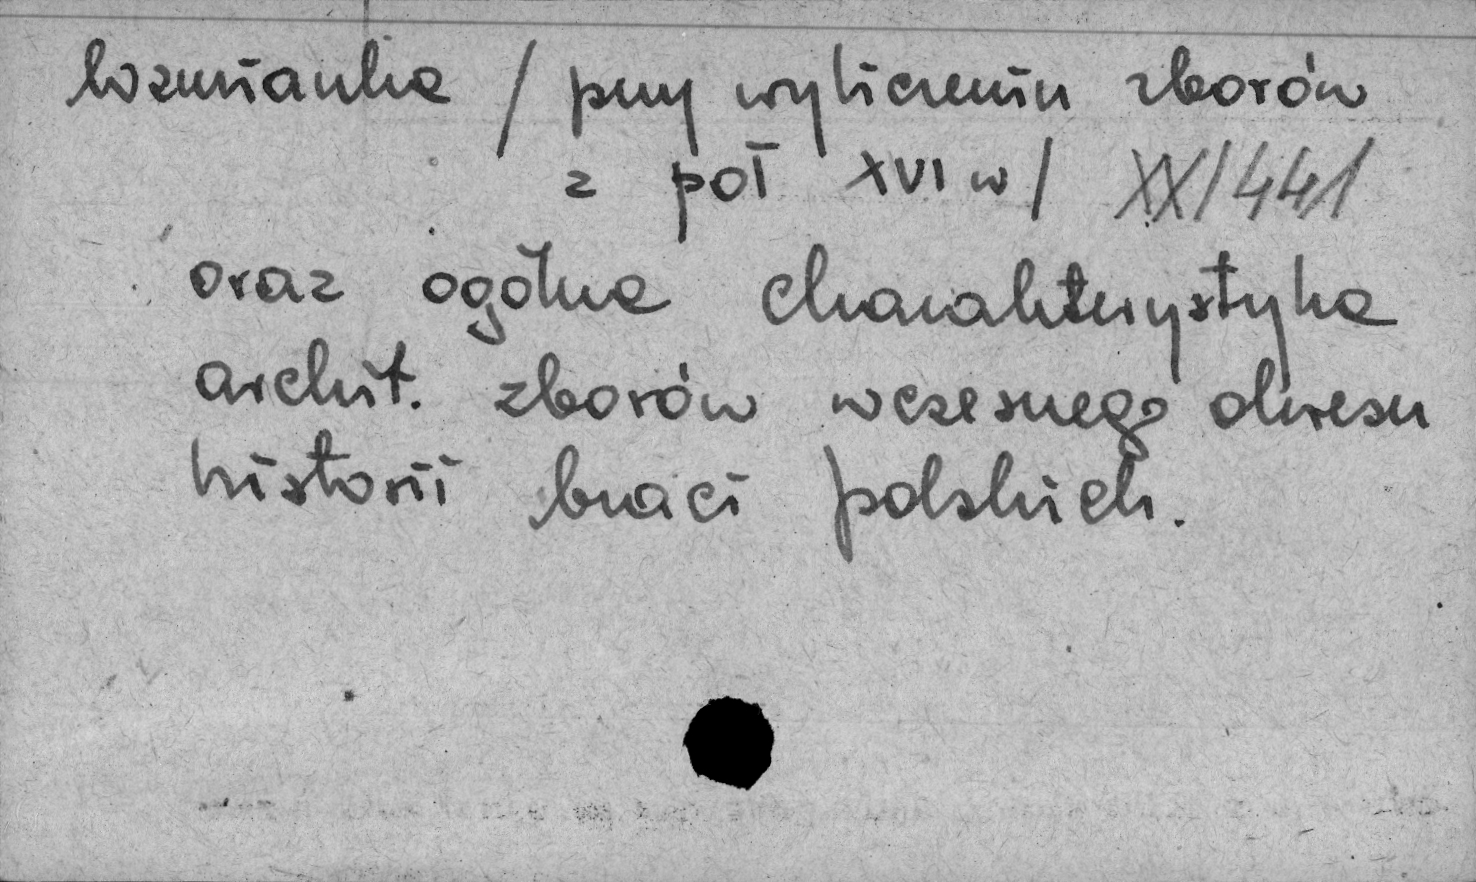 wzmianka / przy wyliczeniu zborów
z poł XVI w / XX/441
oraz ogólna charakterystyka
archit. zborów wczesnego okresu
historii braci polskich.